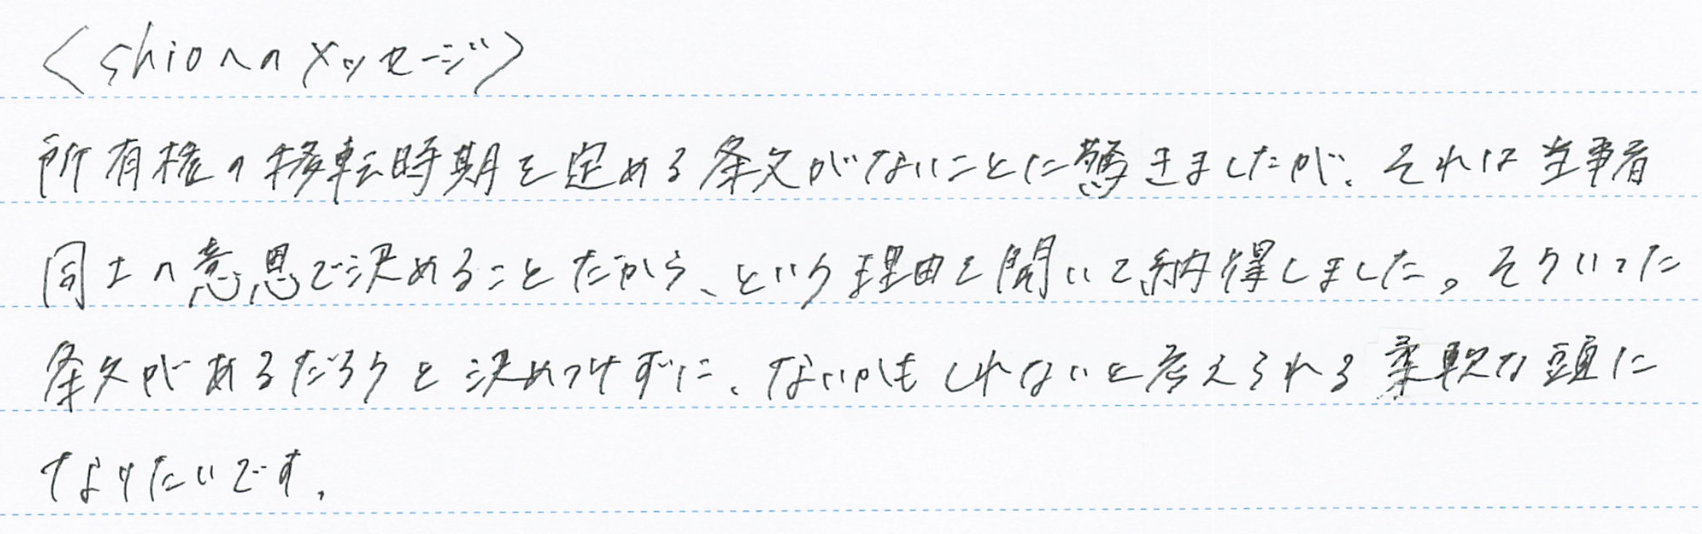 <shioへのメッセージ>
所有権の移転時期を定める条文がないことに驚きましたが、それは当事者
同士の意思で決めることだから、という理由を聞いて納得しました。そういった
条文があるだろうと決めつけずに、ないかもしれないと考えられる柔軟な頭に
なりたいです。